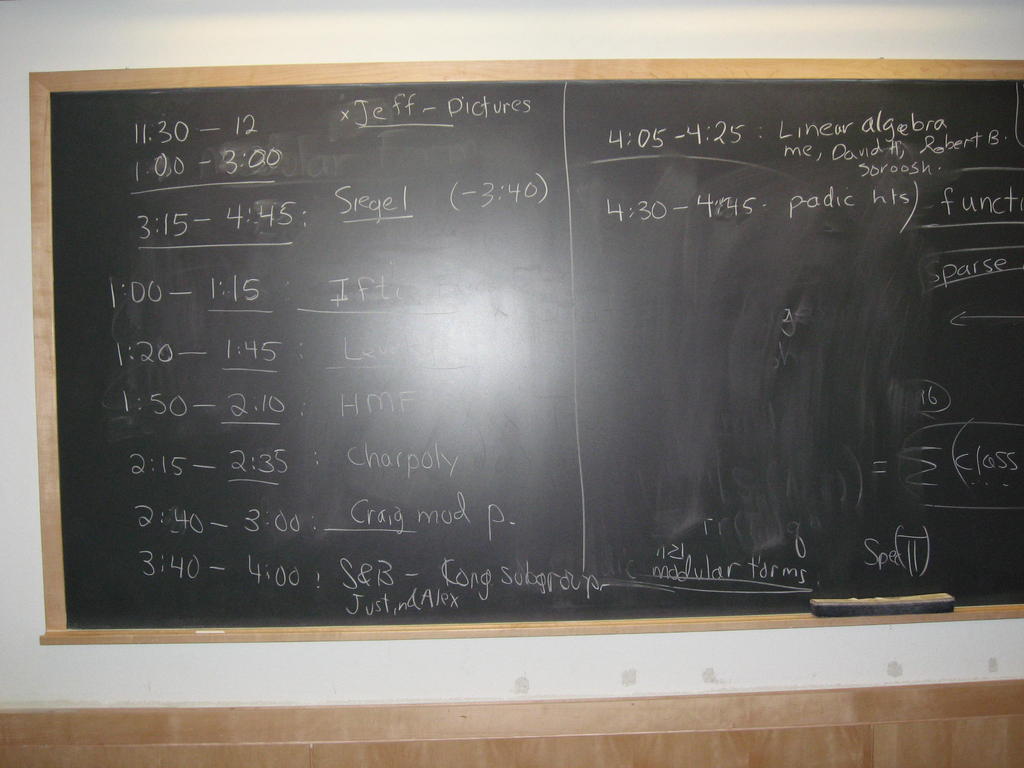 11:30 - 12
x Jeff - Pictures
1:00 - 3:00
3:15 - 4:45: Siegel (-3:40)
1:00 - 1:15 : Ifti
1:20 - 1:45 :
1:50 - 2:10 : HMF
2:15 - 2:35 : Charpoly
2:40 - 3:00: Craig mod p.
3:40 - 4:00: S&B - Kong subgroup
Justin Alex
4:05-4:25: Linear algebra
me, David H, Robert B.
Soroosh.
4:30-4:45. padic hts) functi
sparse
←
16
= Σ (class
modular forms
Spec(T)